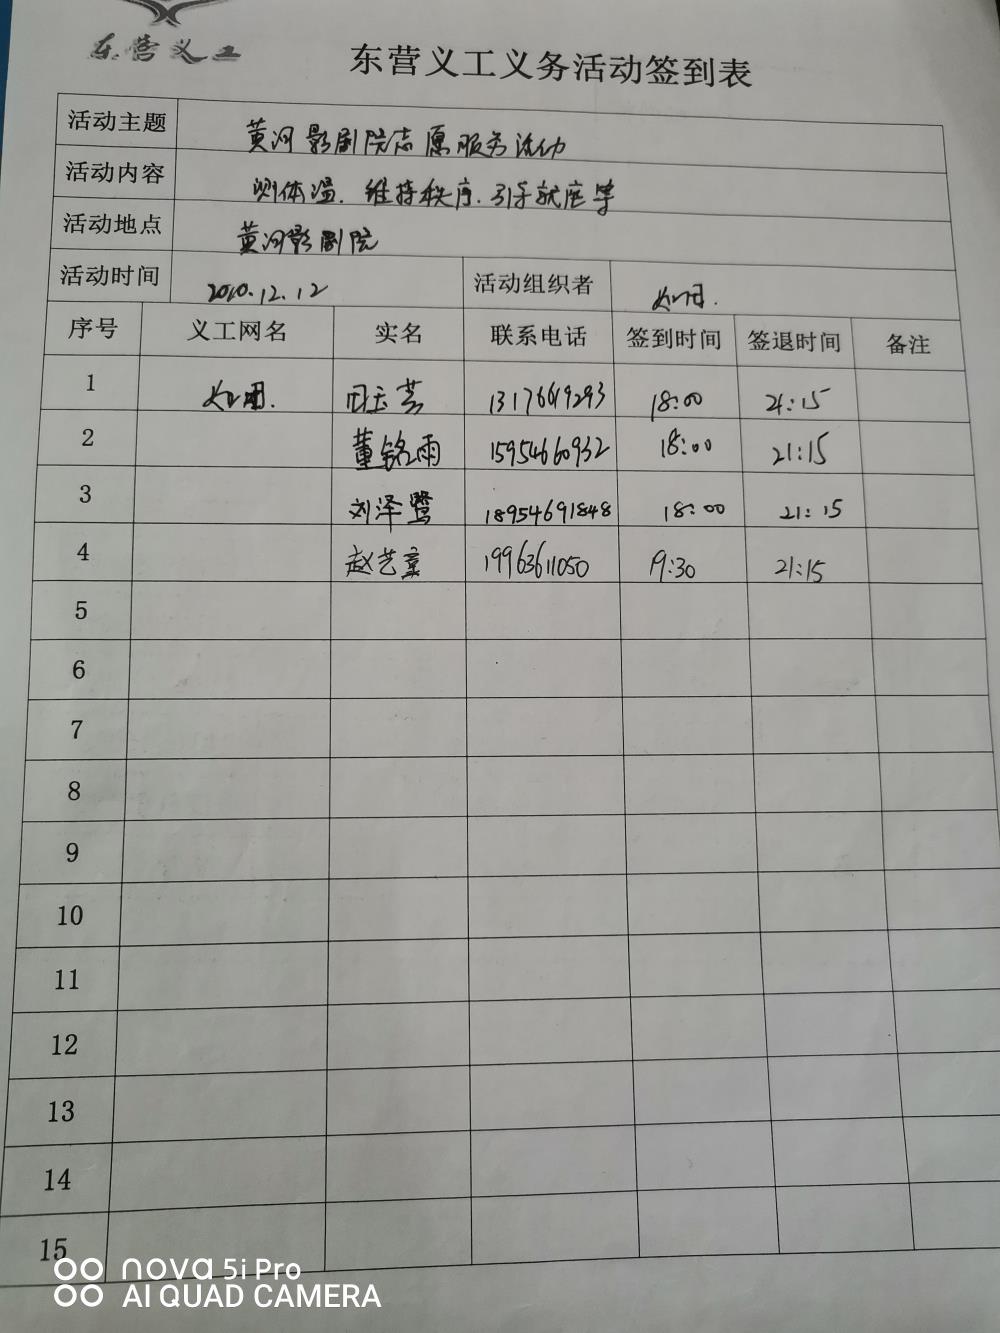 东营义工
东营义工义务活动签到表
活动主题 黄河影剧院志愿服务活动
活动内容 测体温.维持秩序.引导就座等
活动地点 黄河影剧院
活动时间 2020.12.12 活动组织者
序号 义工网名 实名 联系电话 签到时间 签退时间 备注
1 田玉芸 13176619293 18:00 21:15
2 董铭雨 15954660932 18:00 21:15
3 刘泽鹭 18954691848 18:00 21:15
4 赵艺童 19963611050 19:30 21:15
5
6
7
8
9
10
11
12
13
14
15
nova 5i Pro
AI QUAD CAMERA